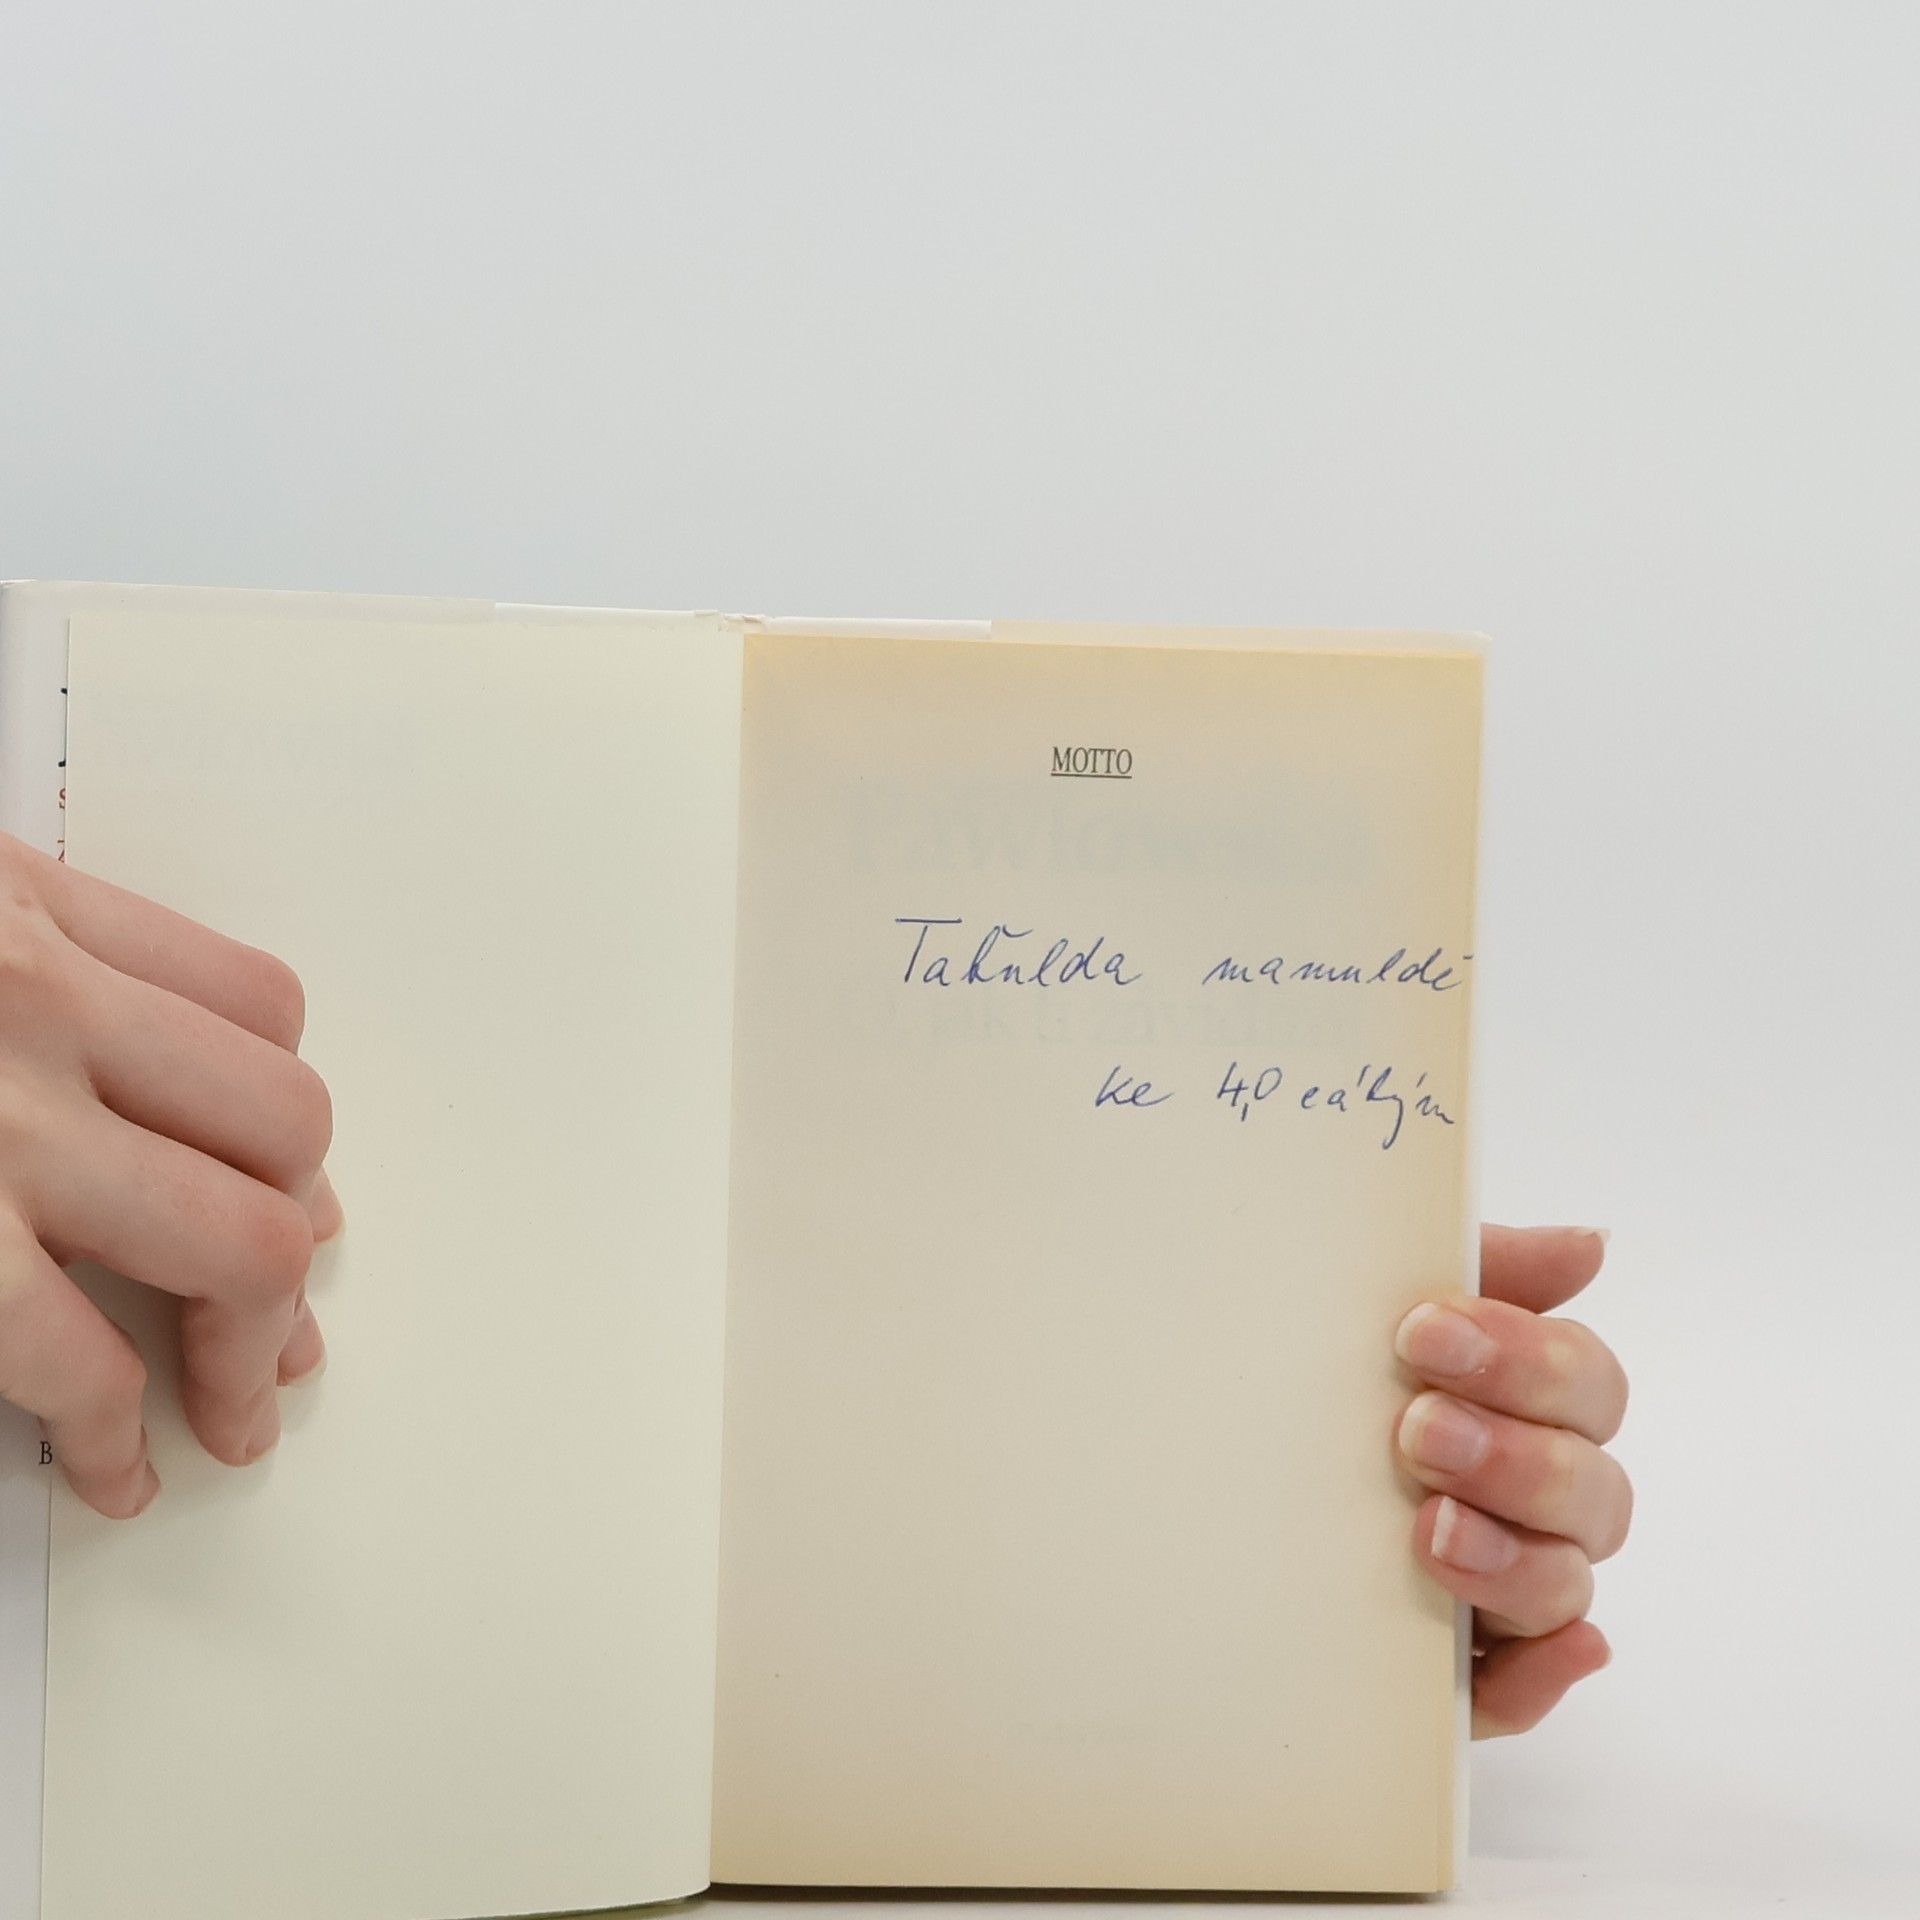 MOTTO
Taťulda mamuldě
ke 4,0 cátým
B